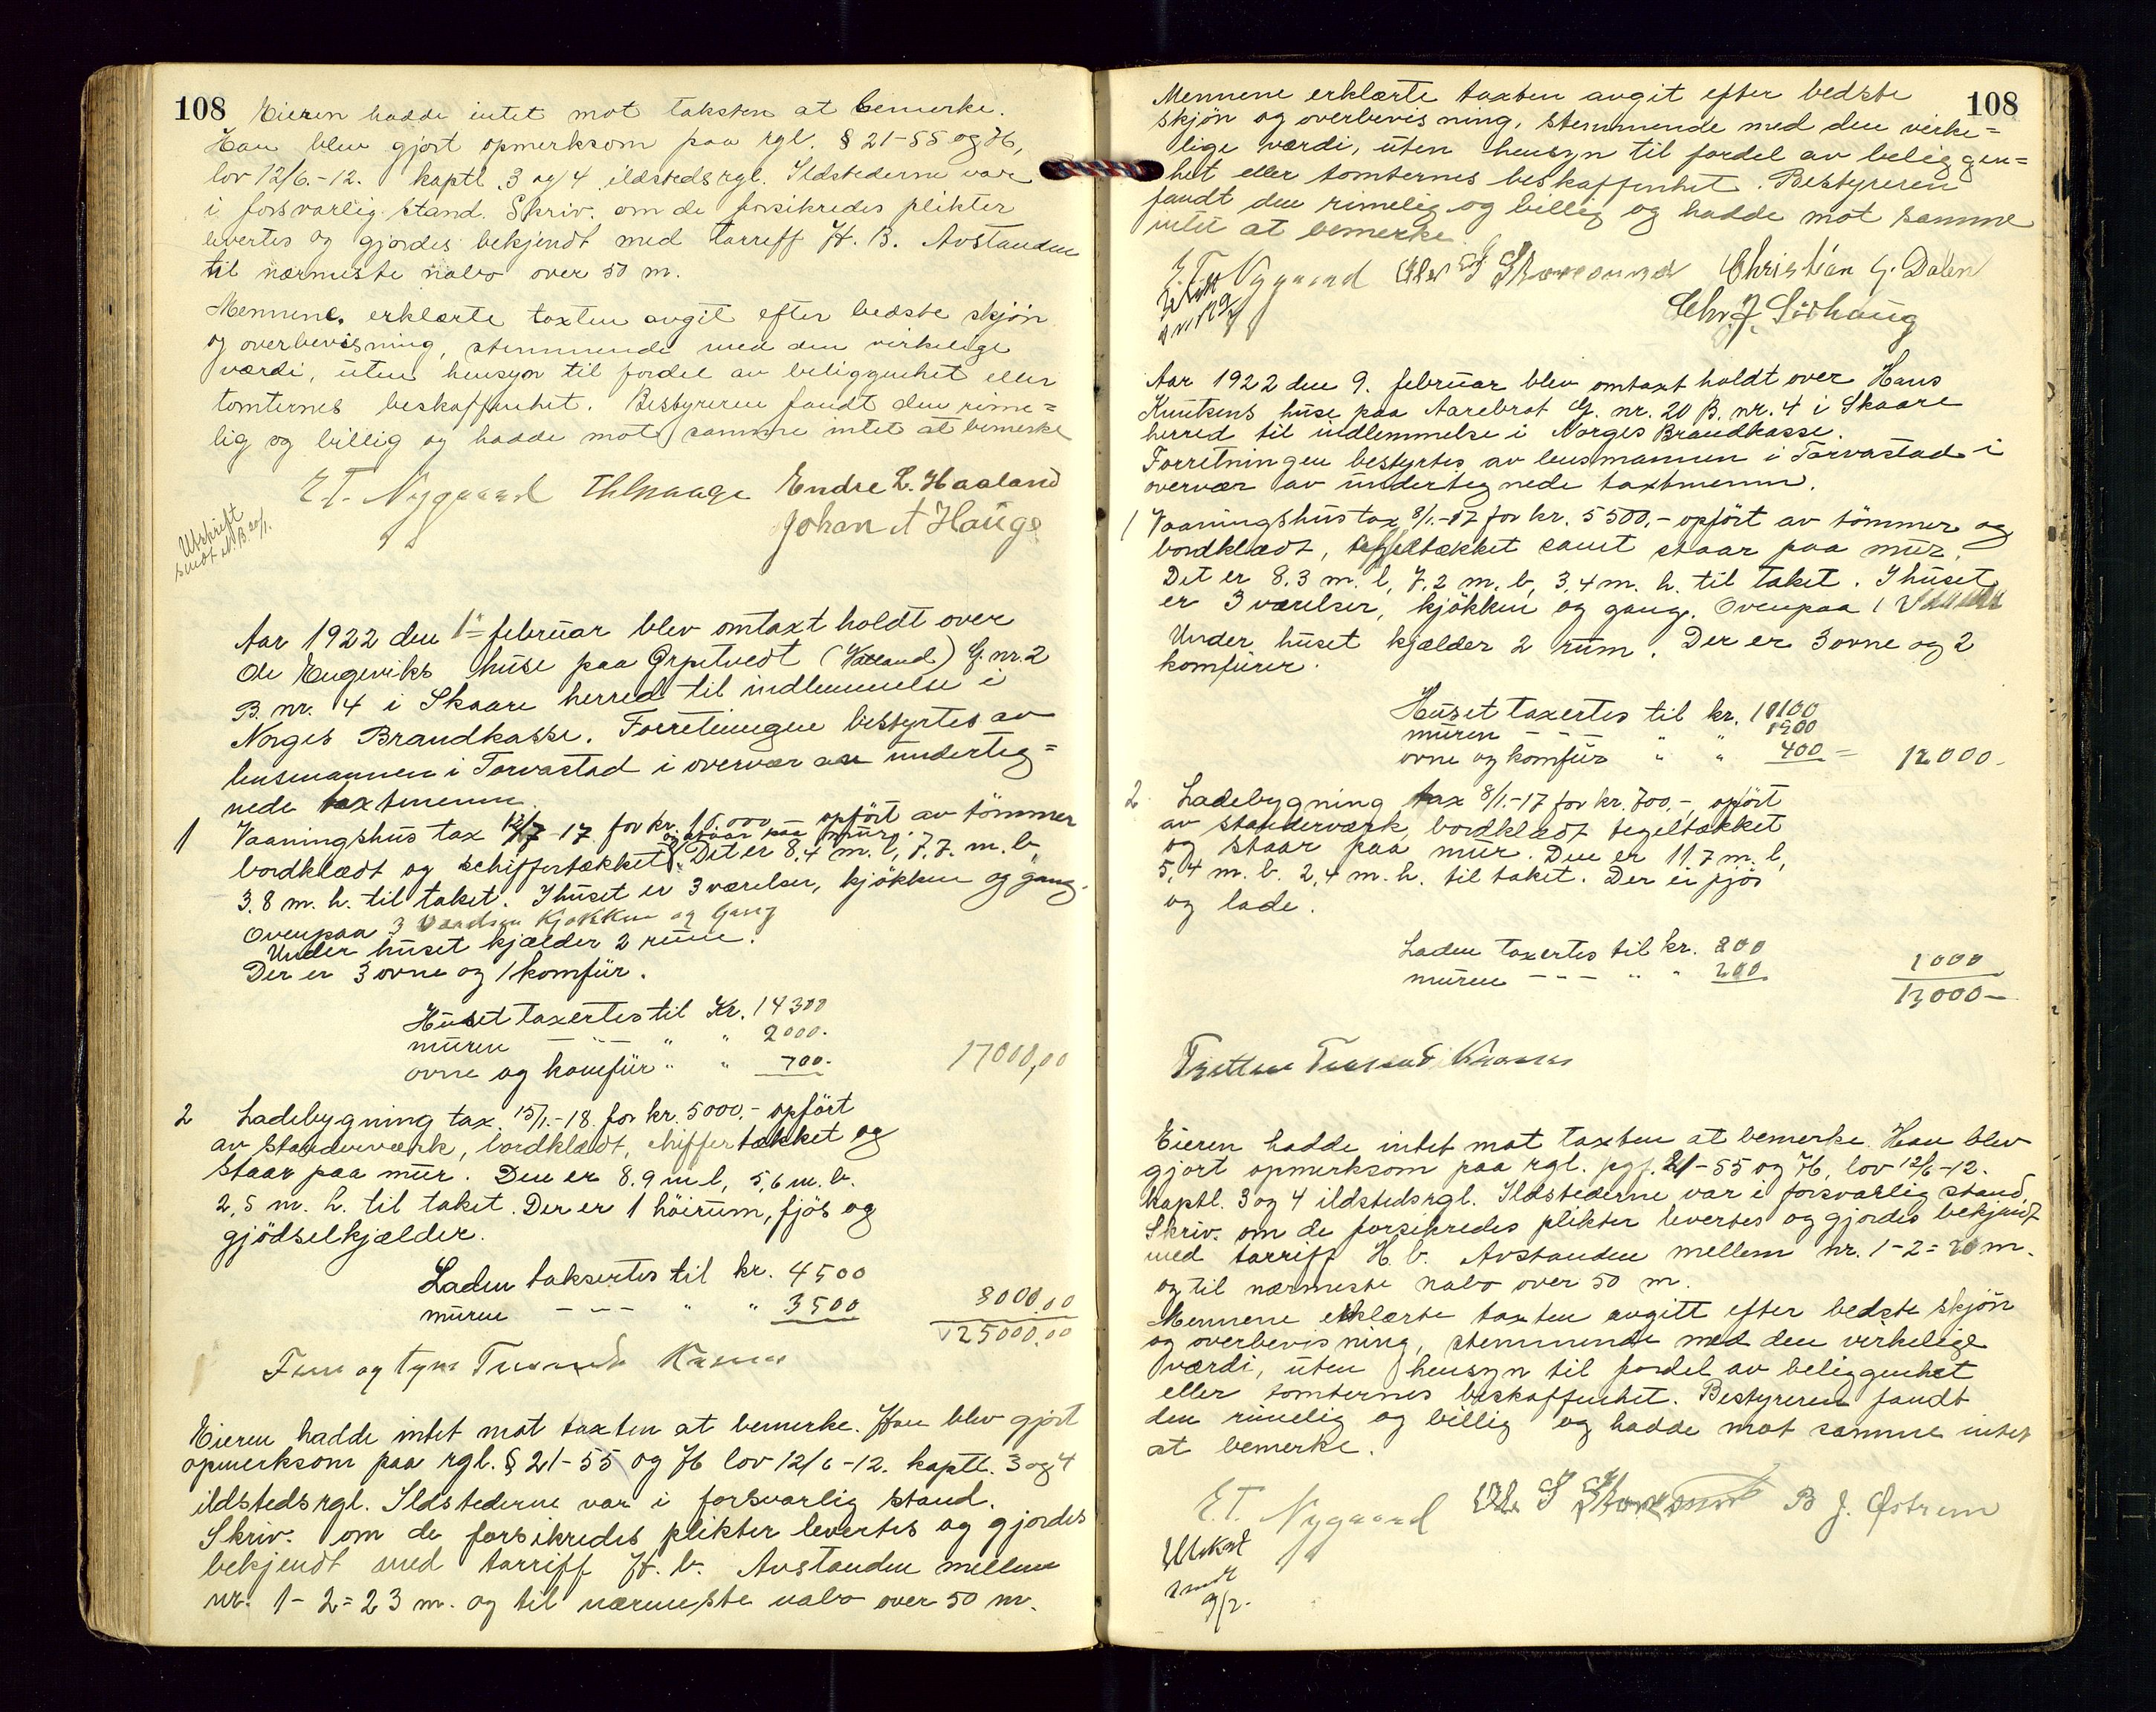 108
Eieren hadde intet mot taksten at bemerke.
Han blev gjort opmerksom paa rgl. § 21-55 og 76,
lov 12/6.-12. kaptl. 3 og 4 ildstedsrgl. Ildstederne var
i forsvarlig stand. Skriv. om de forsikredes plikter
levertes og gjordes bekjendt med tarriff H. B. Avstanden
til nærmeste nabo over 50 m.
Mennene erklærte taxten avgit efter bedste skjön
og overbevisning, stemmende med den virkelige
værdi, uten hensyn til fordel av beliggenhet eller
tomternes beskaffenhet. Bestyreren fandt den rime=
lig og billig og hadde mot samme intet at bemerke
E. T. Nygaard Endre L. Haaland
Johan A Hauge
Utskrift
sendt N. B. 20/1.
Aar 1922 den 1ste februar blev omtaxt holdt over
Ole Engeviks huse paa (Valand) G. nr. 2
B. nr. 4 i Skaare herred til indlemmelse i
Norges Brandkasse. Forretningen bestyrtes av
lensmannen i Torvastad i overvær av undertig=
nede taxtmenn.
1 Vaaningshus tax 12/7-17 for kr. 10.000 – opfört av tömmer
og staar paa mur.
bordklædt og schiffertækket. Det er 8.4 m. l, 7.7. m. b,
3.8 m. h. til taket. I huset er 3 værelser, kjökken og gang.
Ovenpaa 3 Kjøkken og Gang
Under huset kjælder 2 rum.
Der er 3 ovne og 1 komfür.
Huset taxertes til Kr. 14300
muren – – – " " 2000.
ovne og komfür " " 700. 17000,00
2 Ladebygning tax. 15/1.-18. for kr. 5000.- opfört
av standerværk, bordklædt, chiffertækket og
staar paa mur. Den er 8.9 m l, 5,6 m. b.
2,5 m. h. til taket. Der er 1 höirum, fjös og
gjödselkjælder.
Laden taksertes til kr. 4500
muren – – – " " 3500 8000.00
25000.00
Fem og tyve Tusende Kroner
Eieren hadde intet mot taxten at bemerke. Han blev gjort
opmerksom paa rgl. § 21-55 og 76 lov 12/6-12. kaptl. 3 og 4
ildstedsrgl. Ildstederne var i forsvarlig stand.
Skriv. om de forsikredes plikter levertes og gjordes
bekjendt med tarriff H. b. Avstanden mellem
nr. 1-2 = 23 m. og til nærmeste nabo over 50 m.
108
Mennene erklærte taxten avgit efter bedste
skjön og overbevisning, stemmende med den virke=
lige værdi, uten hensyn til fordel av beliggen=
het eller tomternes beskaffenhet. Bestyreren
fandt den rimelig og billig og hadde mot samme
intet at bemerke.
E. T. Nygaard Christian G. Dalen
Chr. J. Sörhaug
Aar 1922 den 9. februar blev omtaxt holdt over Hans
Knutsens huse paa Aarebrot G. nr. 20 B. nr. 4 i Skaare
herred til indlemmelse i Norges Brandkasse.
Forretningen bestyrtes av lensmannen i Torvastad i
overvær av undertegnede taxtmenn.
1 Vaaningshus tax 8/1.-17 for kr. 5500.- opfört av tömmer og
bordklædt, tegeltækket samt staar paa mur.
Det er 8.3 m. l, 7.2 m. b, 3,4 m. h. til taket. I huset
er 3 værelser, kjökken og gang. Ovenpaa 1
Under huset kjælder 2 rum. Der er 3 ovne og 2
komfürer.
Huset taxertes til kr. 10100
muren – – – " " 1500
ovne og komfür " " 400 = 12000.
2 Ladebygning tax 8/1.-17 for kr. 700.-, opfört
av standerværk, bordklædt tegeltækket
og staar paa mur. Den er 11.7 m. l,
5,4 m. b. 2,4 m. h. til taket. Der er fjös
og lade.
Laden taxertes til kr. 800
muren – – – " " 200 1000
13000 –
Tretten Tusend Kroner
Eieren hadde intet mot taxten at bemerke. Han blev
gjort opmerksom paa rgl. pgf. 21-55 og 76, lov 12/6-12.
kaptl. 3 og 4 ildstedsrgl. Ildstederne var i forsvarlig stand,
Skriv. om de forsikredes plikter levertes og gjordes bekjendt
med tarriff H. b. Avstanden mellem nr. 1-2 = 20 m.
og til nærmeste nabo over 50 m.
Mennene erklærte taxten avgitt efter bedste skjön
og overbevisning, stemmende med den virkelige
værdi, uten hensyn til fordel av beliggenhet
eller tomternes beskaffenhet. Bestyreren fandt
den rimelig og billig og hadde mot samme intet
at bemerke.
E. T. Nygaard B J. Østrem
Utskrt
sendt
9/2.